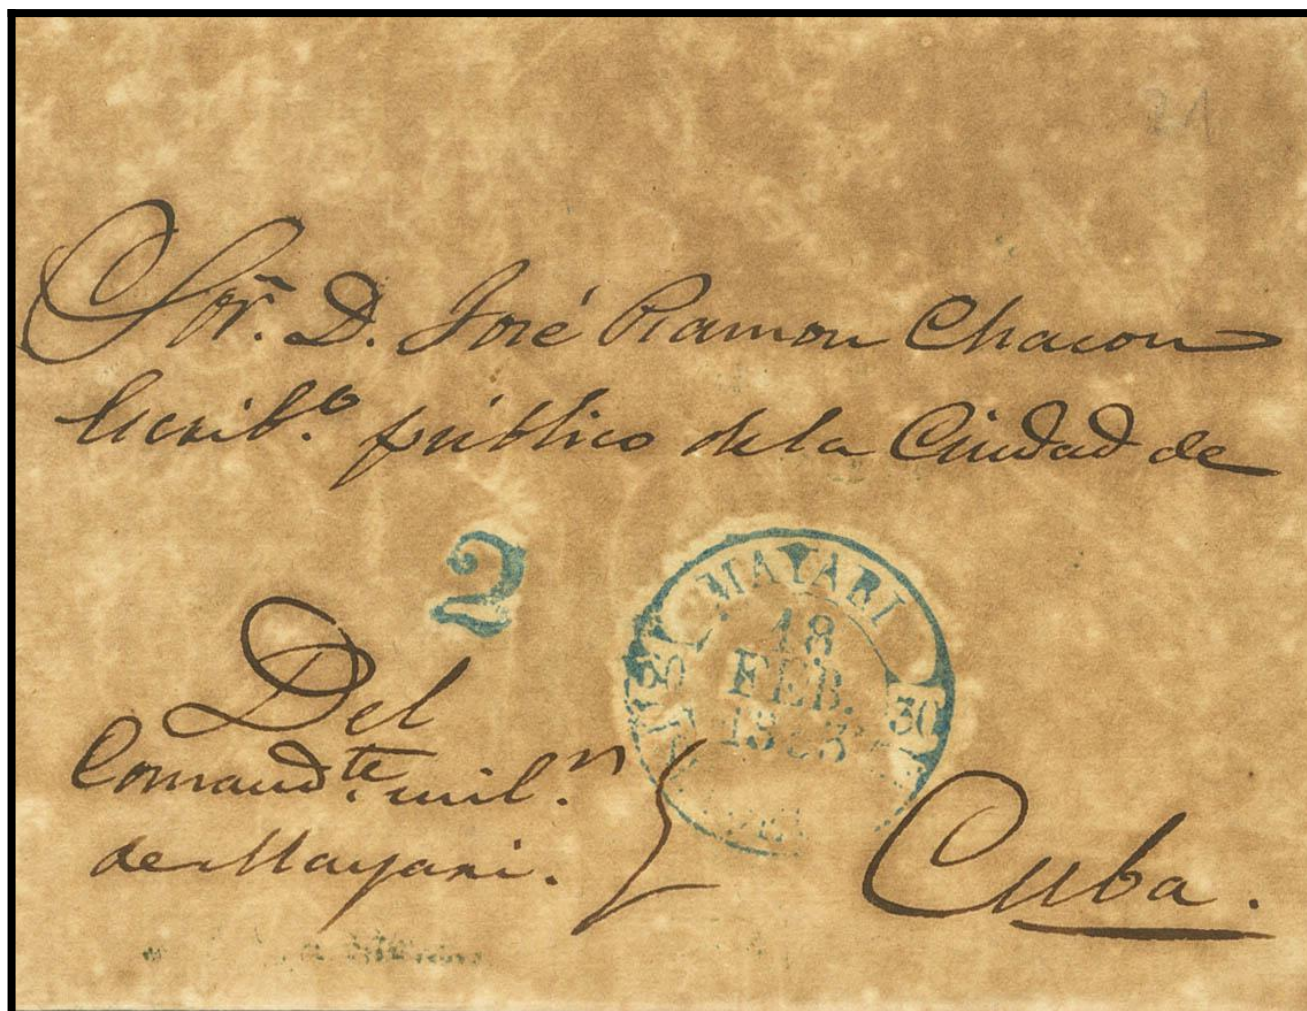 21
Sor. D. José Ramon Chacon
Escrib.o público de la Ciudad de
2
MAYARI
18
FEB.
30
30
Del
Comand.te mil.r
de Mayari.
Cuba.